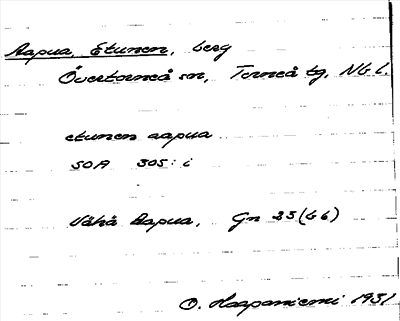 Aapua, Etunen, berg
Övertorneå sn, Torneå tg, Nb l.
etunen aapua
SOA 305: i
Vähä Aapua, Gn 25 (46)
O. Haapaniemi 1931